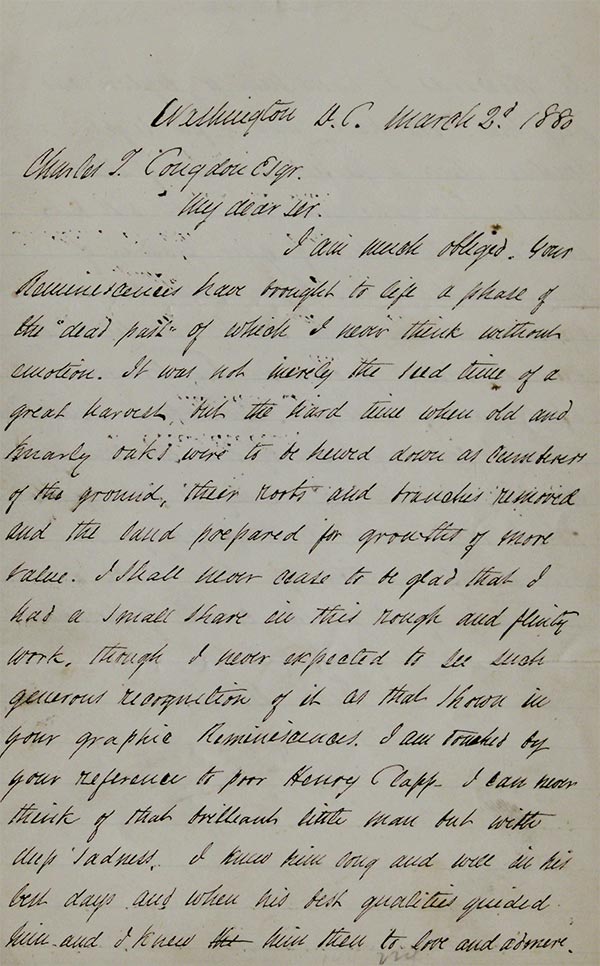 Washington D.C. March 2d 1880
Charles T. Congdon Esqr.
My dear Sir.
I am much obliged. Your
Reminescences have brought to life a phase of
the "dead past" of which I never think without
emotion. It was not merely the seed time of a
great harvest, but the hard time when old and
knarly oaks were to be hewed down as cumberers
of the ground, their roots and branches removed
and the land prepared for growths of more
value. I shall never cease to be glad that I
had a small share in this rough and flinty
work, though I never expected to see such
generous recognition of it as that shown in
your graphic Reminiscences. I am touched by
your reference to poor Henry Clapp- I can never
think of that brilliant little man but with
deep sadness. I knew him long and well in his
best days and when his best qualities guided
him and I knew him then to love and admire.